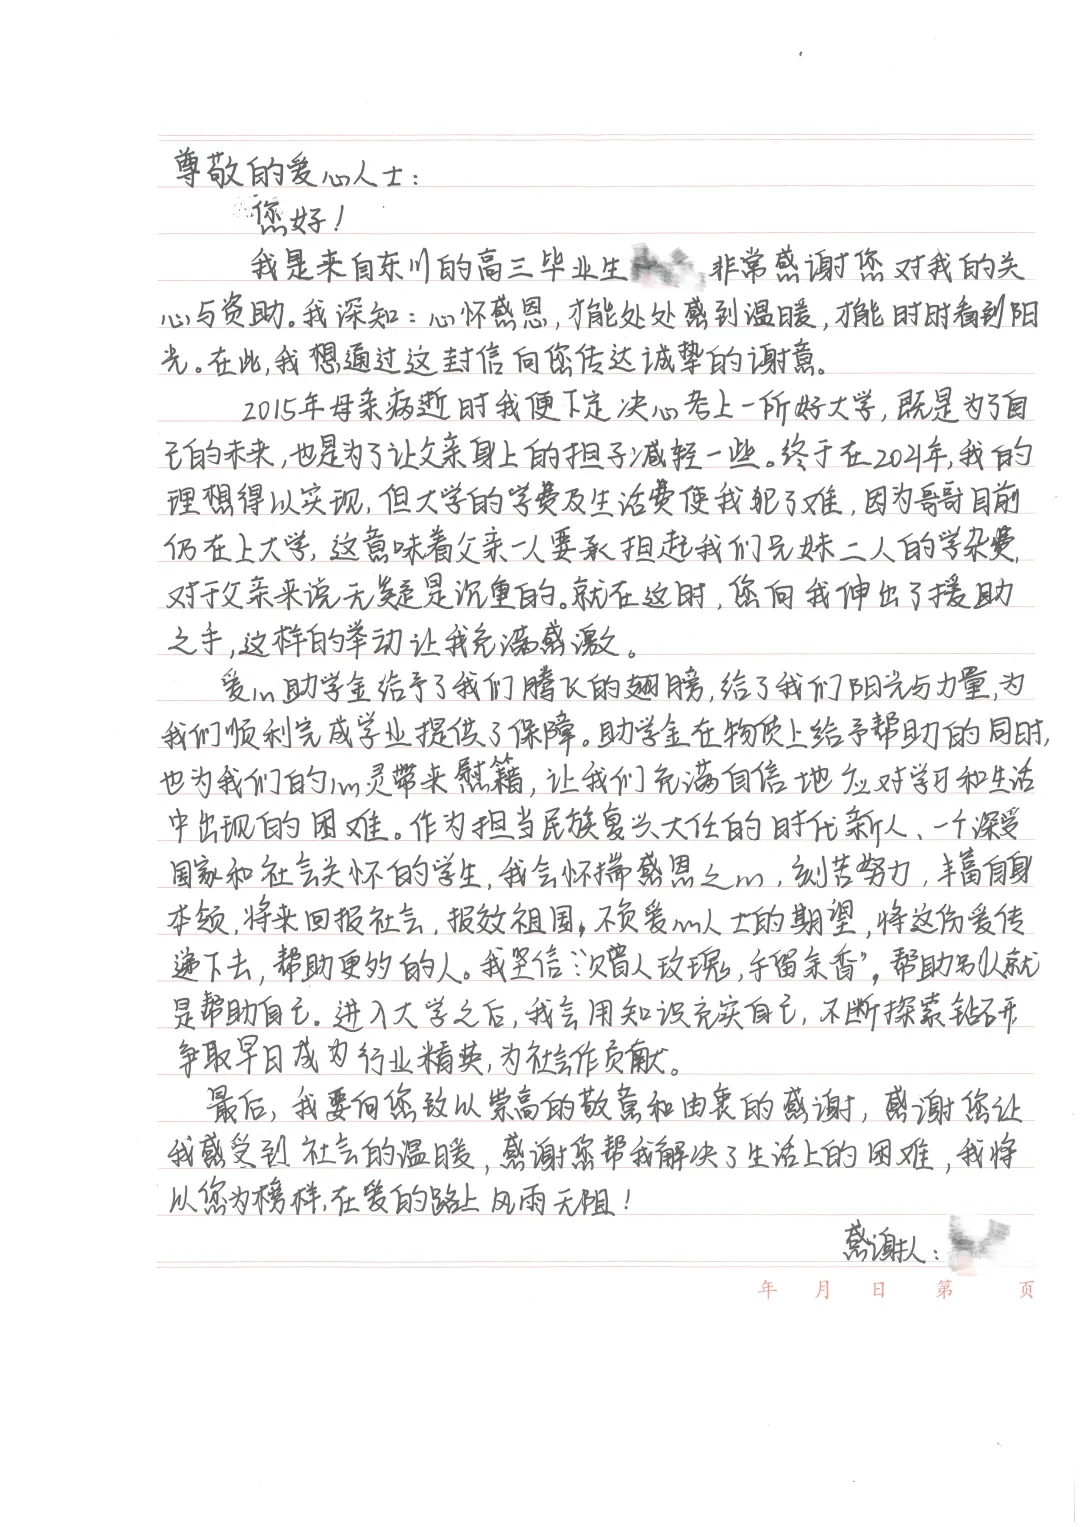 尊敬的爱心人士：
您好！
我是来自东川的高三毕业生 非常感谢您对我的关
心与资助。我深知：心怀感恩，才能处处感到温暖，才能时时看到阳
光。在此，我想通过这封信向您传达诚挚的谢意。
2015年母亲病逝时我便下定决心考上一所好大学，既是为了自
己的未来，也是为了让父亲身上的担子减轻一些。终于在2021年，我的
理想得以实现，但大学的学费及生活费使我犯了难，因为哥哥目前
仍在上大学，这意味着父亲一人要承担起我们兄妹二人的学杂费，
对于父亲来说无疑是沉重的。就在这时，您向我伸出了援助
之手，这样的举动让我充满感激。
爱心助学金给予了我们腾飞的翅膀，给了我们阳光与力量，为
我们顺利完成学业提供了保障。助学金在物质上给予帮助的同时，
也为我们的心灵带来慰籍，让我们充满自信地应对学习和生活
中出现的困难。作为担当民族复兴大任的时代新人、一个深受
国家和社会关怀的学生，我会怀揣感恩之心，刻苦努力，丰富自身
本领，将来回报社会，报效祖国，不负爱心人士的期望，将这份爱传
递下去，帮助更多的人。我坚信“赠人玫瑰，手留余香”，帮助别人就
是帮助自己。进入大学之后，我会用知识充实自己，不断探索钻研
争取早日成为行业精英，为社会作贡献。
最后，我要向您致以崇高的敬意和由衷的感谢，感谢您让
我感受到社会的温暖，感谢您帮我解决了生活上的困难，我将
以您为榜样，在爱的路上风雨无阻！
感谢人：
年 月 日 第 页